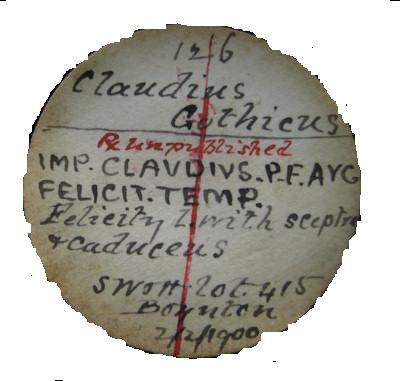 126
Claudius
Gothicus
R unpublished
IMP. CLAVDIVS. P. F. AVG
FELICIT. TEMP.
Felicity l. with sceptre
+ caduceus
lot 415
Boynton
2/2/1900